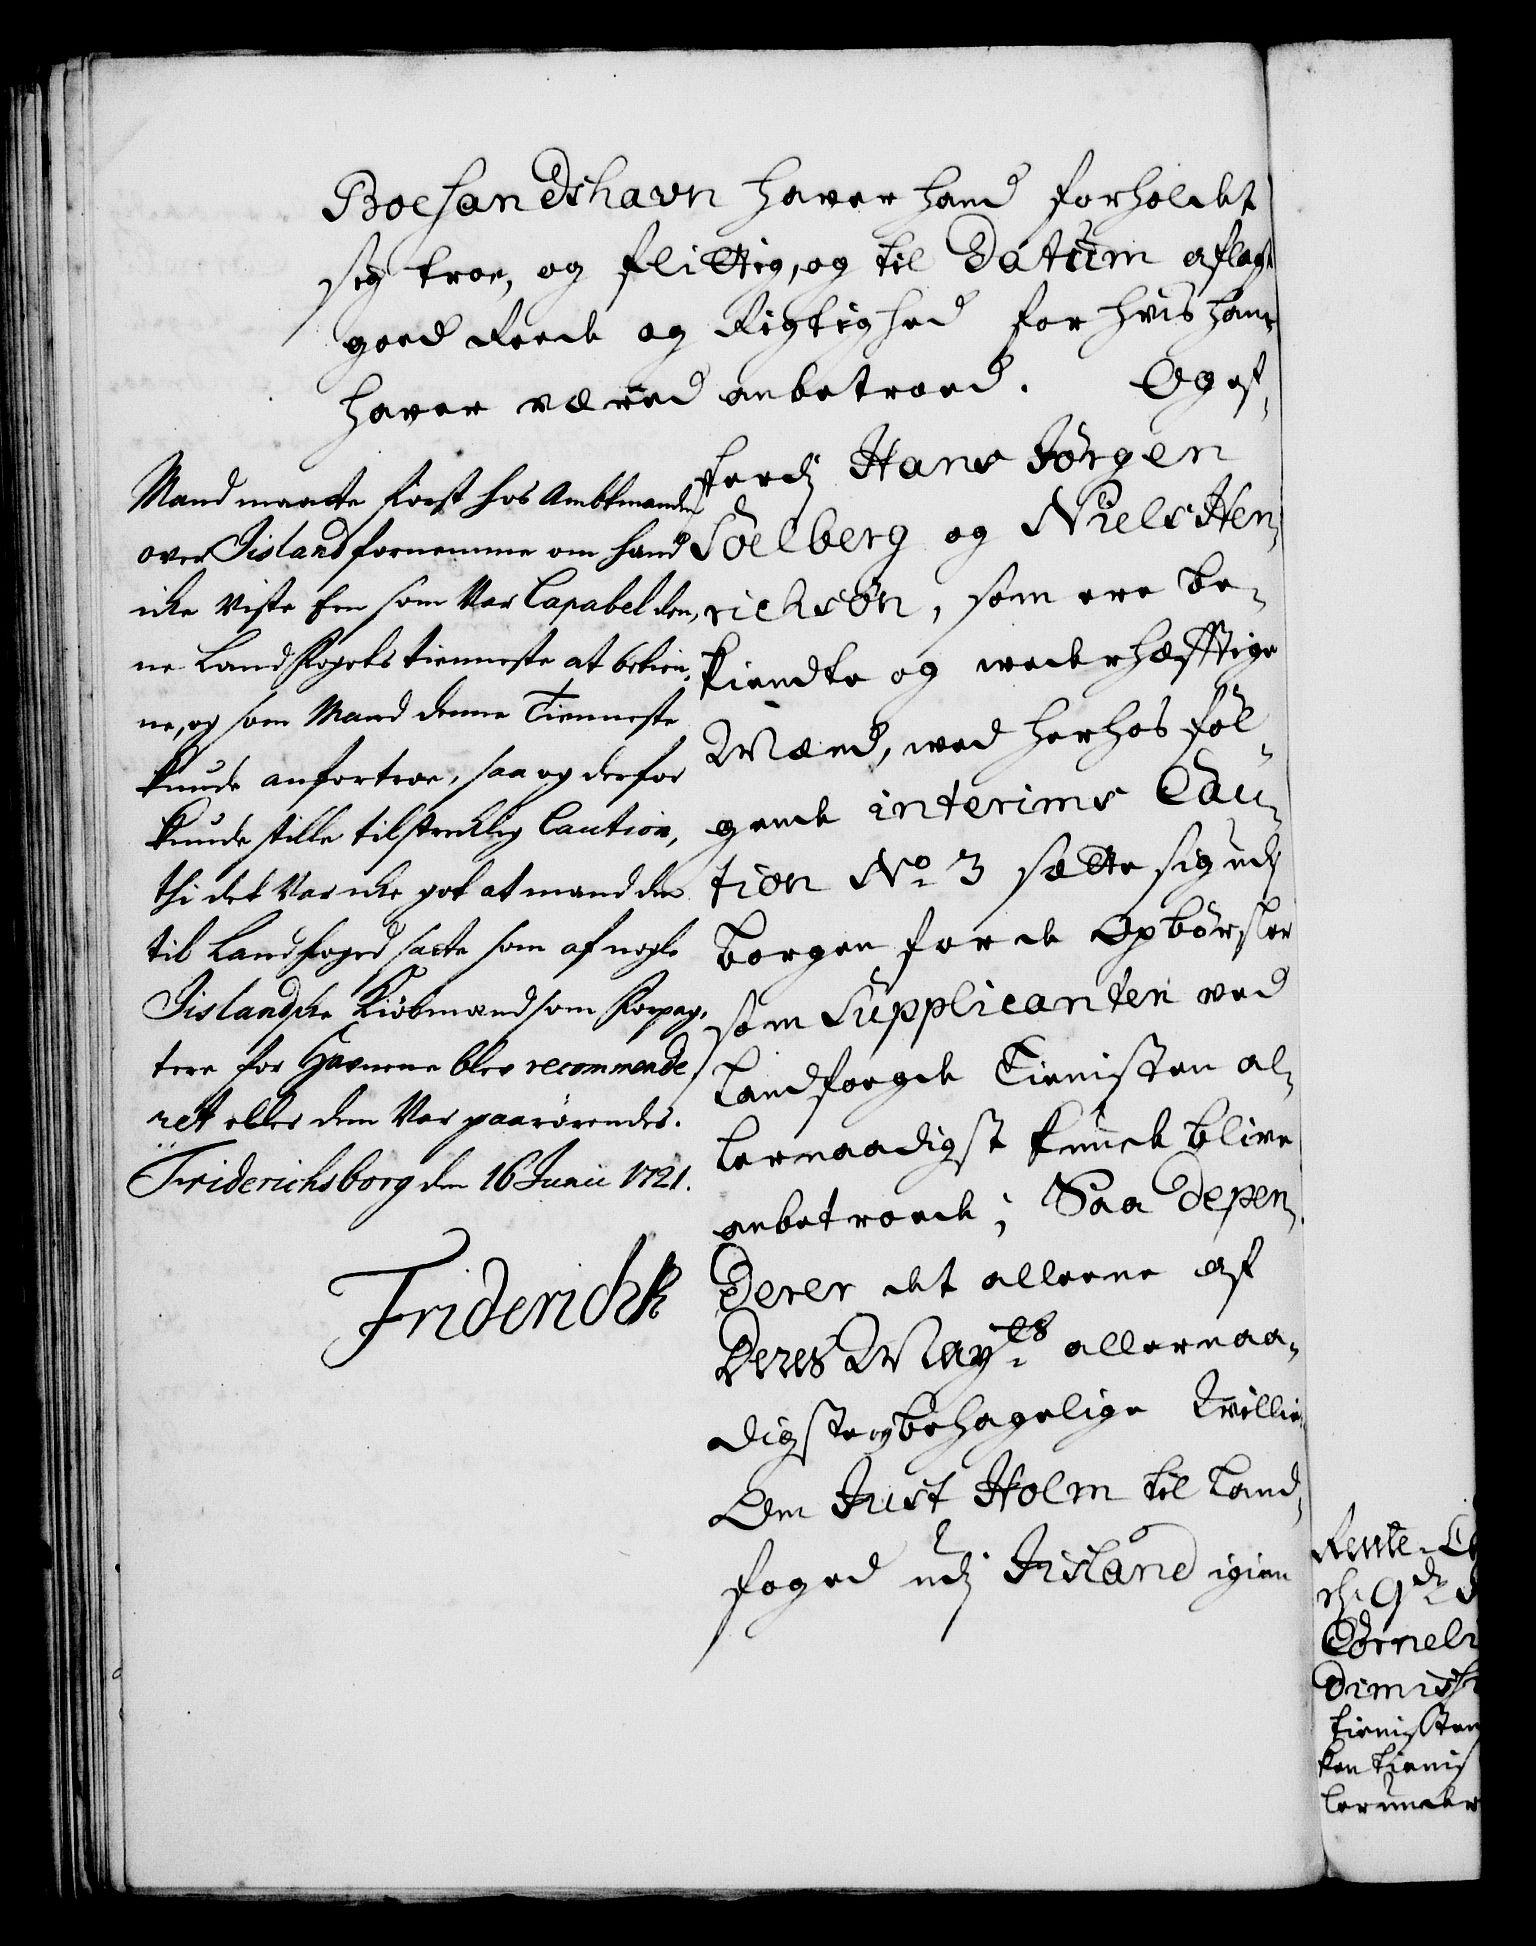 Boesandshavn haver hand forholdet
sig troe, og flittig, og til Datum aflagt
goed Reede og Rigtighed for hvis hand
haver været anbetroed. Og ef-
terdj Hans Jörgen
Söelberg og Niels Hen-
richsøn, som ere be-
kiendte og wederhæfftige
Mænd, wed herhos föl-
gende interims Cau-
tion No 3 sætte sig udj
borgen for de Opbörsler
som Supplicanten ved
Landfogde Tienisten al-
lernaadigst kunde blive
anbetroede; Saa depen-
derer det alleene af
Deres May:ts allernaa-
digste og behagelige Willie
Om Just Holm til Land-
foged udj Jisland igien
Mand maatte först hos Ambtmanden
over Jisland fornemme om hand
icke Viste Een som Var Capabel den-
ne Land Fogets tienneste at betien-
ne, og som Mand denne Tienneste
kunde anfortroe, saa og derfor
kunde stille tilstreckelig Caution,
thi det Var icke got at mand den
til Landfoged satte som af nogle
Jislandske Kiöbmænd som Forpag-
tere for Havnene blev recommende-
ret eller dem Var paarörendes.
Friderichsborg den 16 Junii 1721.
Friderich R
Rente-C
Corneli
Dimis
tienisten